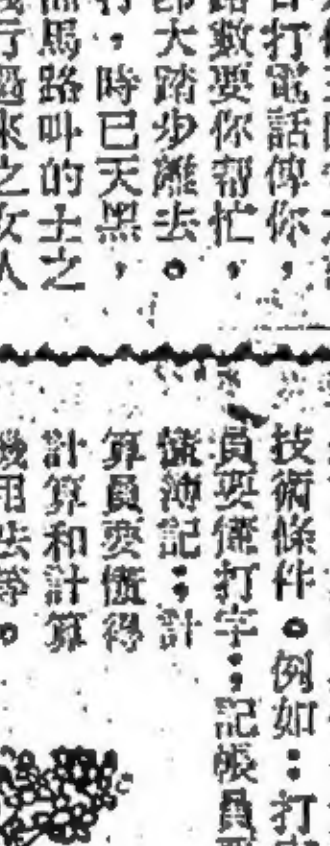 打電話俾你，
路數要你幫忙，
大踏步離去。
時已天黑，
馬路叫的士之
行過來之女人
技術條件。例如：打
員要懂打字；記帳員
懂簿記；計
算員要懂得
計算和計算
機用法等。